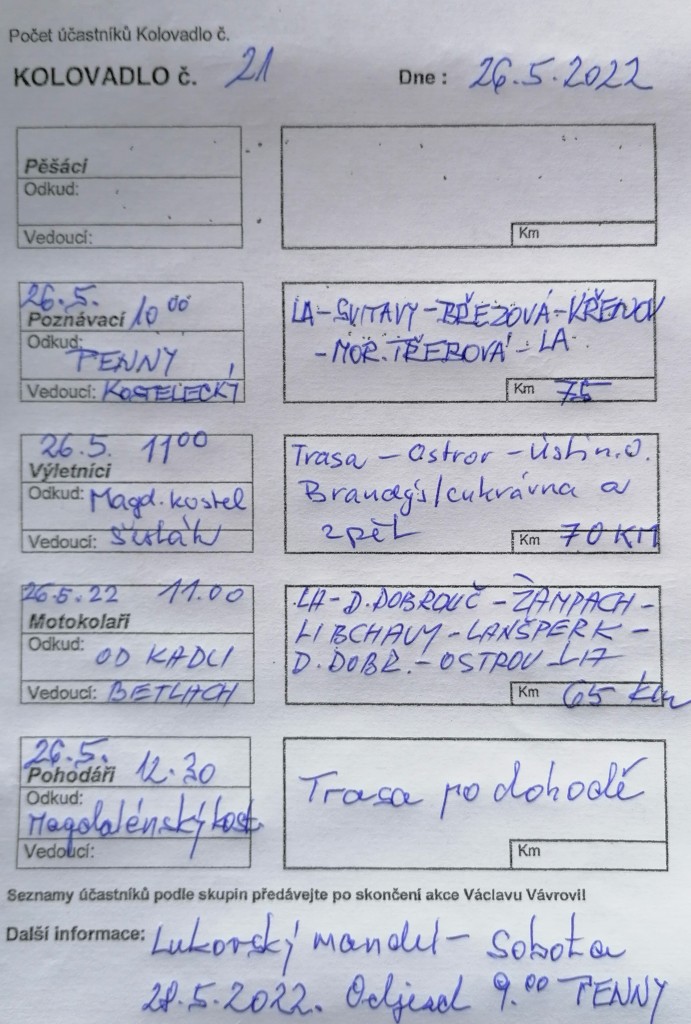 Počet účastníků Kolovadlo č.
KOLOVADLO č. 21 Dne : 26.5.2022
Pěšáci
Odkud:
Vedoucí:
Km
26.5.
Poznávací 10 00
Odkud: PENNY
Vedoucí: KOSTELECKÝ
LA-SVITAVY-BŘEZOVÁ-KŘENOV
-MOR.TŘEBOVÁ-LA
Km 75
26.5. 11 00
Výletníci
Odkud: Magd. kostel
Vedoucí:
Trasa - Ostrov - Ústí n.O.
Brandýs/cukrárna a
zpět
Km 70 KM
26.5.22 11.00
Motokolaři
Odkud: OD KADLI
Vedoucí: BETLACH
LA-D.DOBROUČ-ŽAMPACH-
LIBCHAVY-LANŠPERK-
D.DOBR.-OSTROV-LA
Km 65 km
26.5.
Pohodáři 12.30
Odkud:
Magdalénský kost.
Vedoucí:
Trasa po dohodě
Km
Seznamy účastníků podle skupin předávejte po skončení akce Václavu Vávrovi!
Další informace: Lukovský mandl - Sobota
28.5.2022. Odjezd 9.00 PENNY